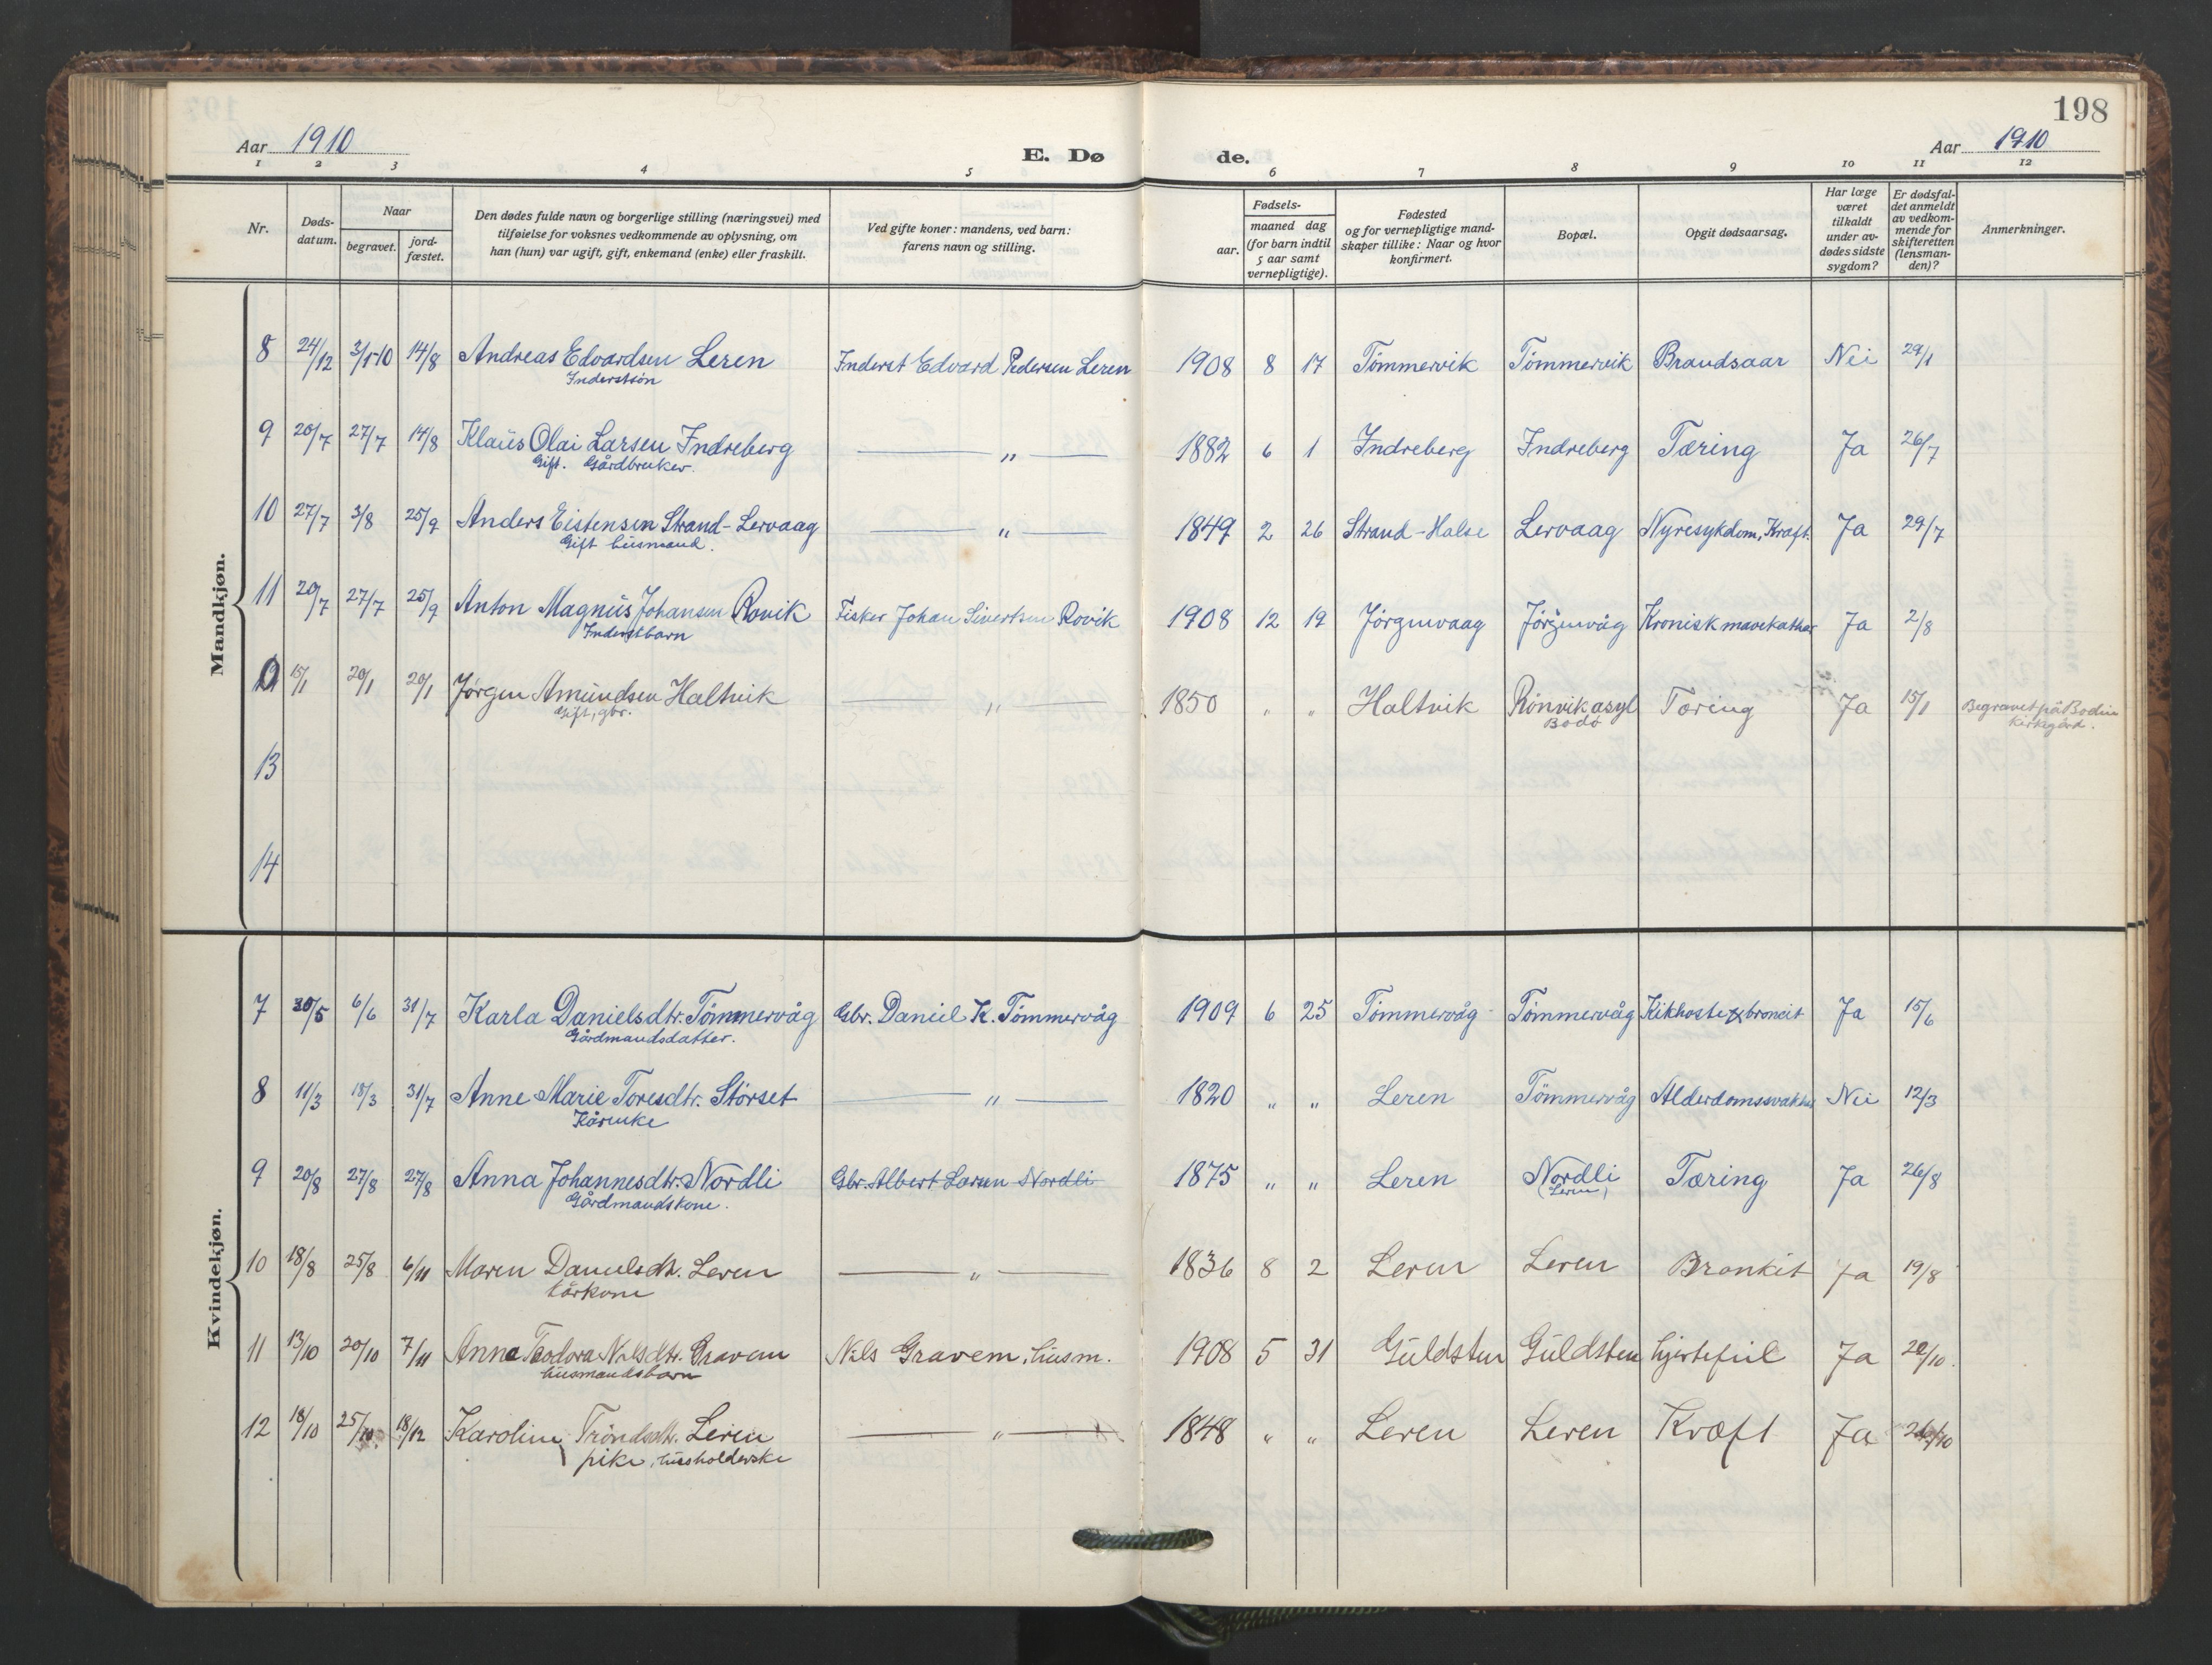 198
Aar 1910
E. Dø de.
Aar 1910
1 2 3 4 5 6 7 8 9 10 11 12
Nr.
Døds-
datum.
Naar
begravet.
jord-
fæstet.
Den dødes fulde navn og borgerlige stilling (næringsvei) med
tilføielse for voksnes vedkommende av oplysning, om
han (hun) var ugift, gift, enkemand (enke) eller fraskilt.
Ved gifte koner: mandens, ved barn:
farens navn og stilling.
Fødsels-
aar.
maaned dag
(for barn indtil
5 aar samt
vernepligtige).
Fødested
og for vernepligtige mand-
skaper tillike: Naar og hvor
konfirmert.
Bopæl.
Opgit dødsaarsag.
Har læge
været
tilkaldt
under av-
dødes sidste
sygdom?
Er dødsfal-
det anmeldt
av vedkom-
mende for
skifteretten
(lensman-
den)?
Anmerkninger.
Mandkjøn.
8 24/12 3/1-10 14/8 Andreas Edvardsen Leren Inderst Edvard Pedersen Leren 1908 8 17 Tömmervik Tömmervik Brandsaar Nei 29/1
Inderstsön
9 20/7 27/7 14/8 Klaus Olai Larsen Indreberg — „ — 1882 6 1 Indreberg Indreberg Tæring Ja 26/7
Gift. Gårdbruker.
10 27/7 3/8 25/9 Anders Eistensen Strand-Lervaag — „ — 1849 2 26 Strand-Halse Lervaag Nyresykdom, Kræft. Ja 29/7
Gift husmand.
11 20/7 27/7 25/9 Anton Magnus Johansen Rovik Fisker Johan Sivertsen Rovik 1908 12 19 Jörgenvaag Jörgenvåg Kronisk mavekathar Ja 2/8
Inderstbarn
15/1 20/1 20/1 Jörgen Amundsen Haltvik — „ — 1850 „ „ Haltvik Rönvik asyl Tæring Ja 15/1 Begravet på Bodin
Gift, gbr. Bodö kirkegård.
13
14
Kvindekjøn.
7 30/5 6/6 31/7 Karla Danielsdtr. Tömmervåg Gbr. Daniel K. Tömmervåg 1909 6 25 Tömmervåg Tömmervåg Kikhoste & broncit Ja 15/6
Gårdmandsdatter.
8 11/3 18/3 31/7 Anne Marie Toresdtr. Störset — „ — 1820 „ „ Leren Tömmervåg Alderdomssvakhet Nei 12/3
Kårenke
9 20/8 27/8 27/8 Anna Johannesdtr. Nordli Gbr. Albert Larsen Nordli 1875 „ „ Leren Nordli Tæring Ja 26/8
Gårdmandskone. (Leren)
10 18/8 25/8 6/11 Maren Danielsdtr. Leren — „ — 1836 8 2 Leren Leren Bronkit Ja 19/8
kårkone
11 13/10 20/10 7/11 Anna Teodora Nilsdtr. Gravem Nils Gravem, husm. 1908 5 31 Guldsten Guldsten hjertefeil Ja 20/10.
husmandsbarn
12 18/10 25/10 18/12 Karoline Tröndsdtr. Leren — „ — 1848 „ „ Leren Leren Kræft Ja
pike, husholderske